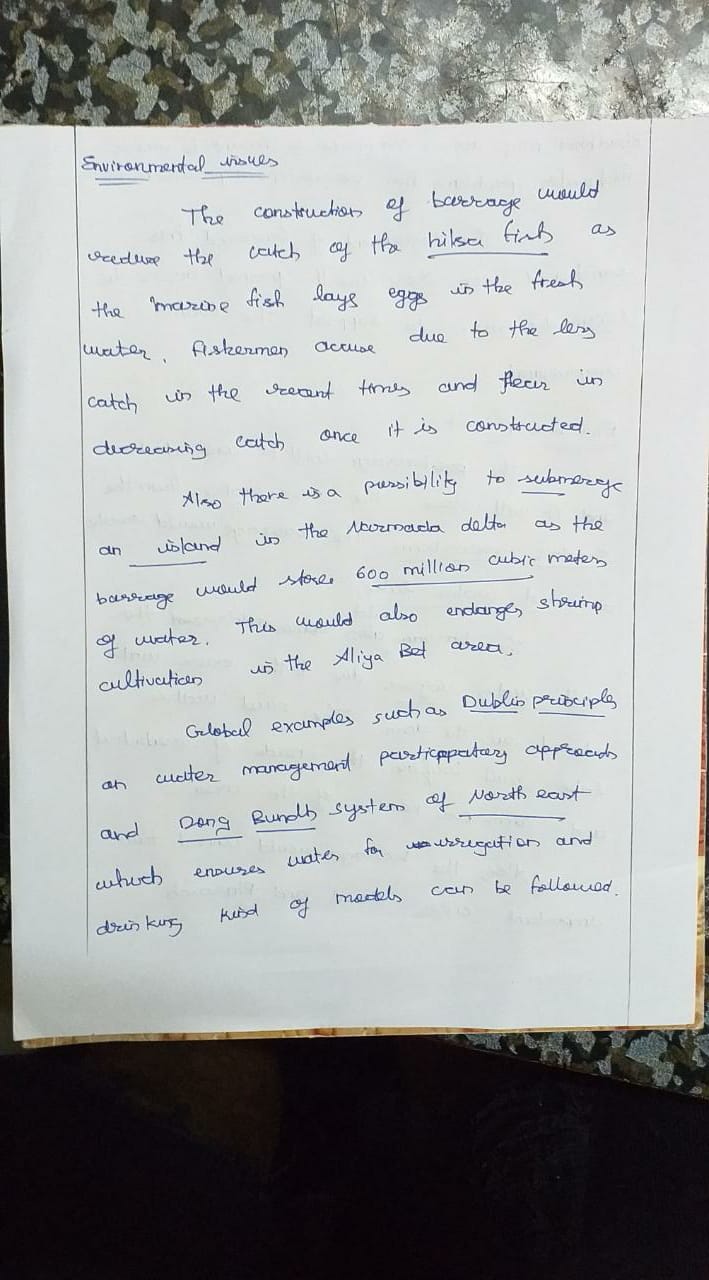 Environmental issues
The construction of barrage would
reduce the catch of the hilsa fish as
the marine fish lays eggs in the fresh
water. Fishermen accuse due to the less
catch in the recent times and fear in
decreasing catch once it is constructed.
Also there is a possibility to submerge
an island in the Narmada delta as the
barrage would store 600 million cubic meters
of water. This would also endanger shrimp
cultivation in the Aliya Bet area.
Global examples such as Dublin principle
on water management participatory approach
and Dong Bundh system of North east
which ensures water for irrigation and
drinking kind of models can be followed.